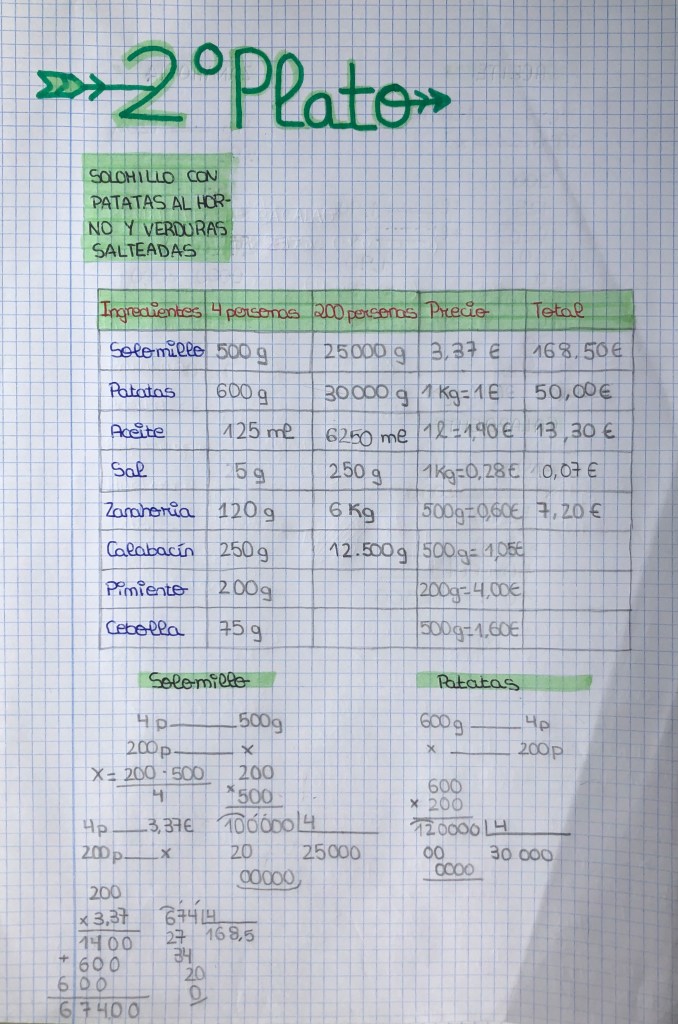 2º Plato
SOLOMILLO CON
PATATAS AL HOR-
NO Y VERDURAS
SALTEADAS
Ingredientes 4 personas 200 personas Precio Total
Solomillo 500 g 25000 g 3,37 € 168,50€
Patatas 600 g 30000 g 1 Kg=1€ 50,00€
Aceite 125 ml 6250 ml 1l=1,90€ 13,30 €
Sal 5 g 250 g 1Kg=0,28€ 0,07 €
Zanahoria 120 g 6 Kg 500g=0,60€ 7,20 €
Calabacín 250 g 12.500 g 500g=1,05€
Pimiento 200g 200g=4,00€
Cebolla 75 g 500g=1,60€
Solomillo Patatas
4 p 500g 600g 4p
200 p x x 200p
x = 200 · 500 200 600
4 × 500 × 200
4p 3,37€ 100000 4 120000 4
200p x 20 25000 00 30 000
00000 0000
200
× 3,37 674 4
1400 27 168,5
+ 600 34
600 20
67400 0